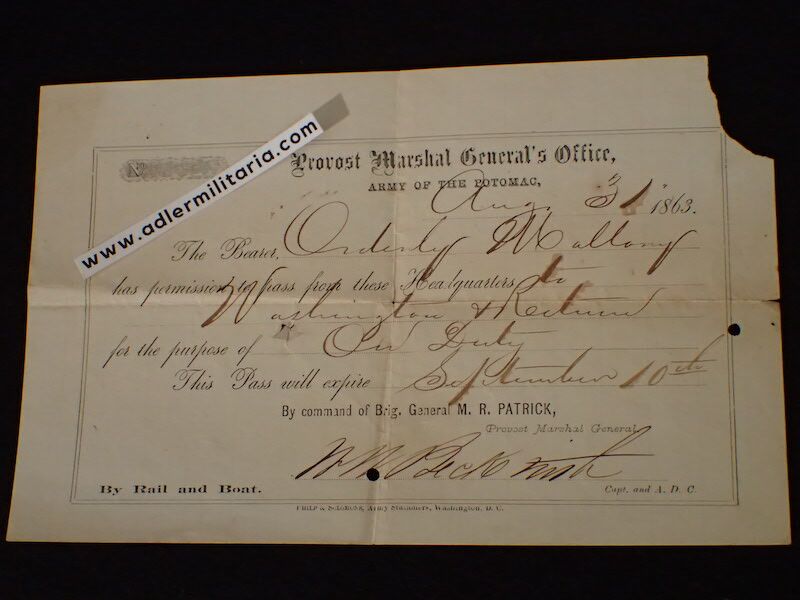 No
www.adlermilitaria.com
Provost Marshal General's Office,
ARMY OF THE POTOMAC,
Aug 31 1863.
The Bearer, Orderly Mallony
has permission to pass from these Headquarters to
Washington & Return
for the purpose of On Duty
This Pass will expire September 10th
By command of Brig. General M. R. PATRICK,
Provost Marshal General.
W M Beckwith
By Rail and Boat.
Capt. and A. D. C.
PHILP & SOLOMONS, Army Stationers, Washington, D. C.